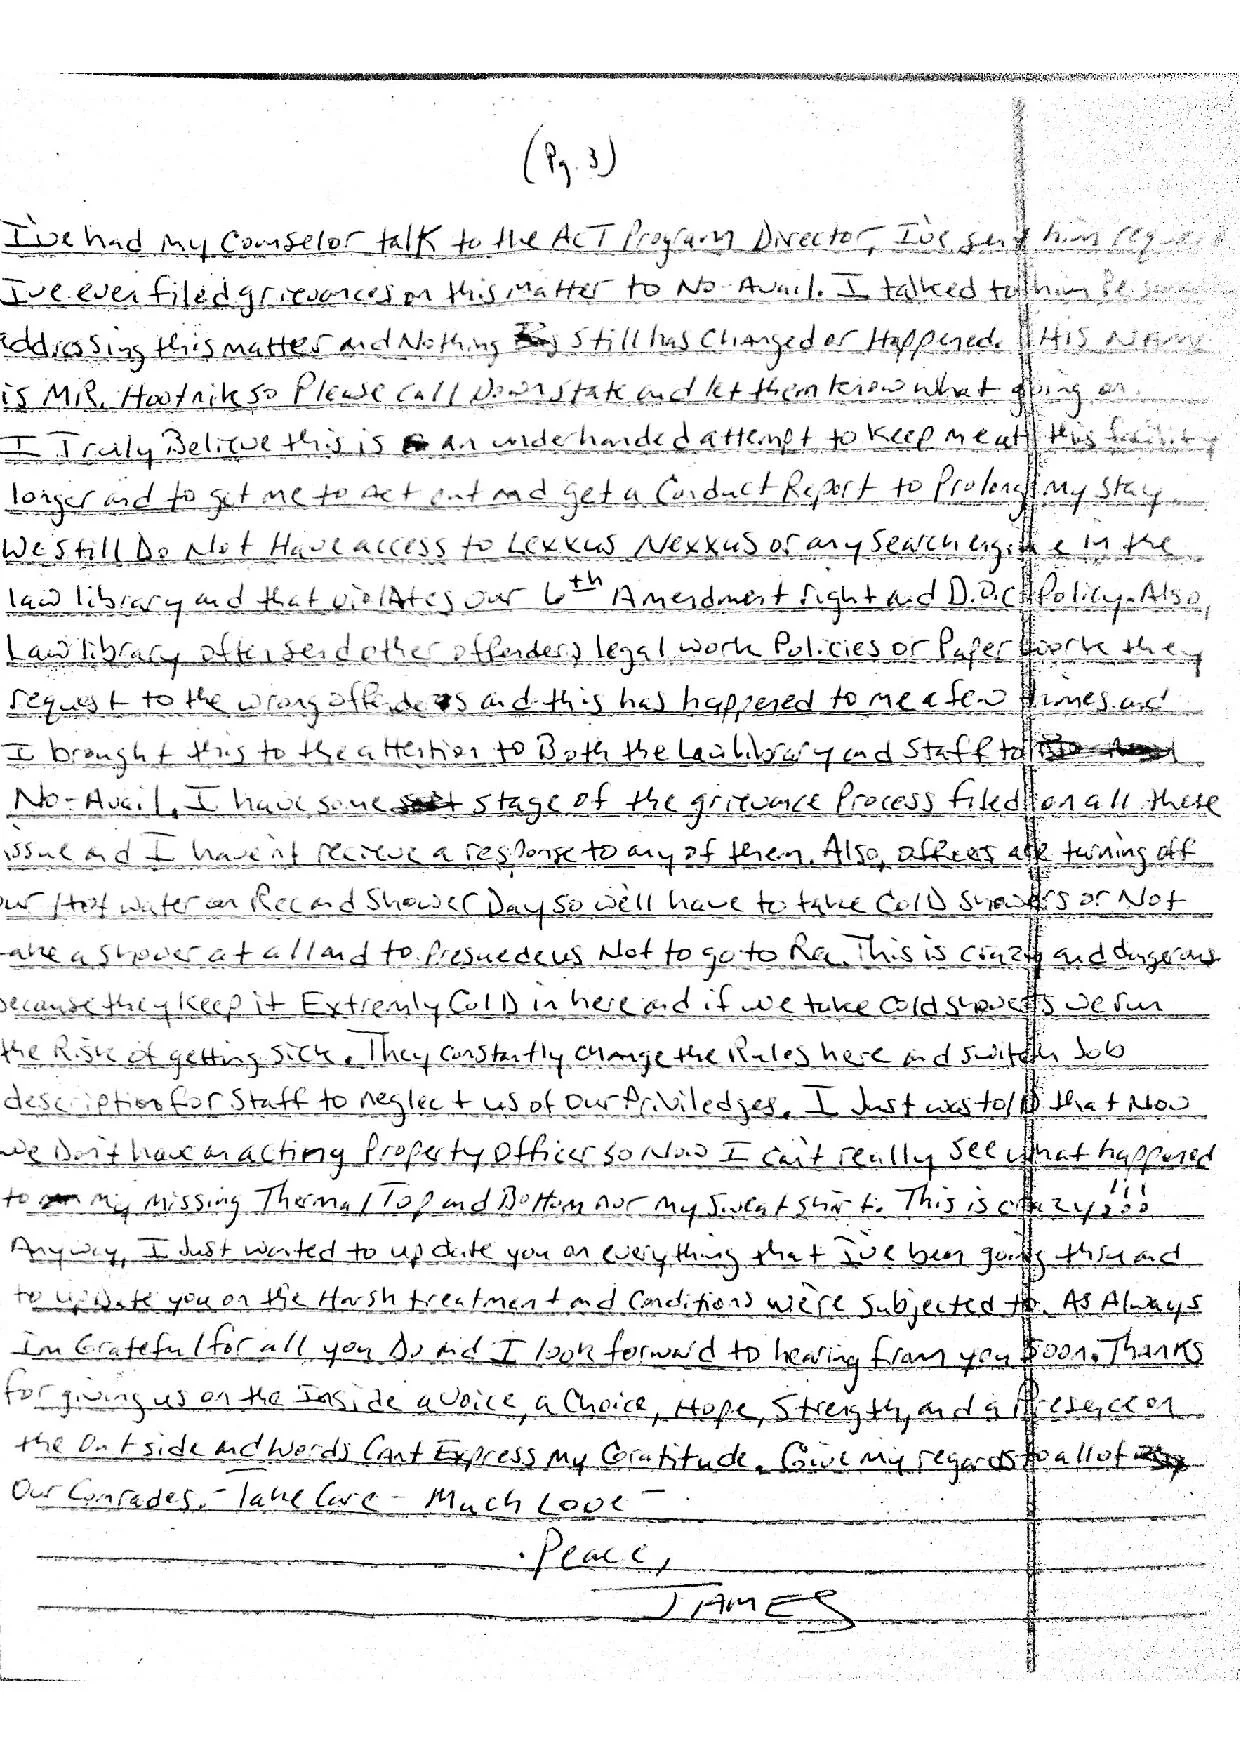 (Pg. 3)
I've had my Counselor talk to the ACT Program Director, I've sent him
I've even filed grievances on this matter to No Avail. I talked to him
addressing this matter and Nothing still has Changed or Happened. HIS NAME
is MR. so Please call Downstate and let them know what going on.
I Truly Believe this is an underhanded attempt to keep me at this facility
longer and to get me to act out and get a Conduct Report to Prolong my stay.
We still Do Not Have access to Lexxus Nexxus or any search engine in the
law library and that violates our 6th Amendment right and D.O.C. Policy. Also,
Law library often send other offenders legal work Policies or Paper work they
request to the wrong offenders and this has happened to me a few times and
I brought this to the attention to Both the Law library and Staff to
No-Avail. I have some stage of the grievance Process filed on all these
issue and I haven't recieve a response to any of them. Also, officers are turning off
our Hot water on Rec and Shower Day so we'll have to take Cold showers or Not
take a shower at all and to Presuede us Not to go to Rec. This is crazy and dangerous
because they keep it Extremly Cold in here and if we take cold showers we run
the Risk of getting sick. They constantly change the Rules here and switch Job
description for Staff to neglect us of our Priviledges. I Just was told that Now
we Don't have an acting Property Officer so Now I can't really see what happened
to my missing Thermal Top and Bottom nor my Sweatshirt. This is crazy!!!
Anyway, I Just wanted to update you on everything that I've been going thru and
to update you on the Harsh treatment and Conditions we're subjected to. As Always
I'm Grateful for all you Do and I look forward to hearing from you soon. Thanks
for giving us on the Inside a Voice, a Choice, Hope, Strength, and a Presence on
the Outside and Words Cant Express My Gratitude. Give my regards to all of
Our Comrades. - Take Care - Much Love -
Peace,
JAMES